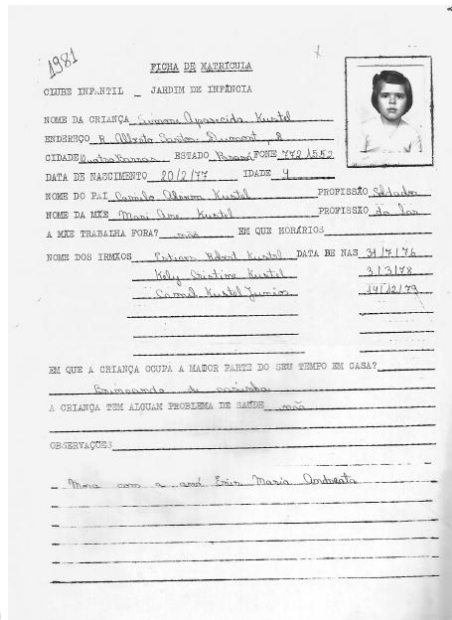 1981
FICHA DE MATRÍCULA
CLUBE INFANTIL _ JARDIM DE INFÂNCIA
NOME DA CRIANÇA Simone Aparecida Kustel
ENDEREÇO R. Alberto Santos Dumont, 8
CIDADE Quatro Barras ESTADO Paraná FONE 772 1552
DATA DE NASCIMENTO 20/2/77 IDADE 4
NOME DO PAI Camilo Kustel PROFISSÃO Soldador
NOME DA MÃE Kustel PROFISSÃO do lar
A MÃE TRABALHA FORA? não EM QUE HORÁRIOS
NOME DOS IRMÃOS Kustel DATA DE NAS 31/7/76
Kely Cristine Kustel 3/3/78
Kustel Junior 14/12/79
EM QUE A CRIANÇA OCUPA A MAIOR PARTE DO SEU TEMPO EM CASA?
Brincando de casinha
A CRIANÇA TEM ALGUAM PROBLEMA DE SAÚDE não
OBSERVAÇÕES
Mora com a avó Maria Andreata